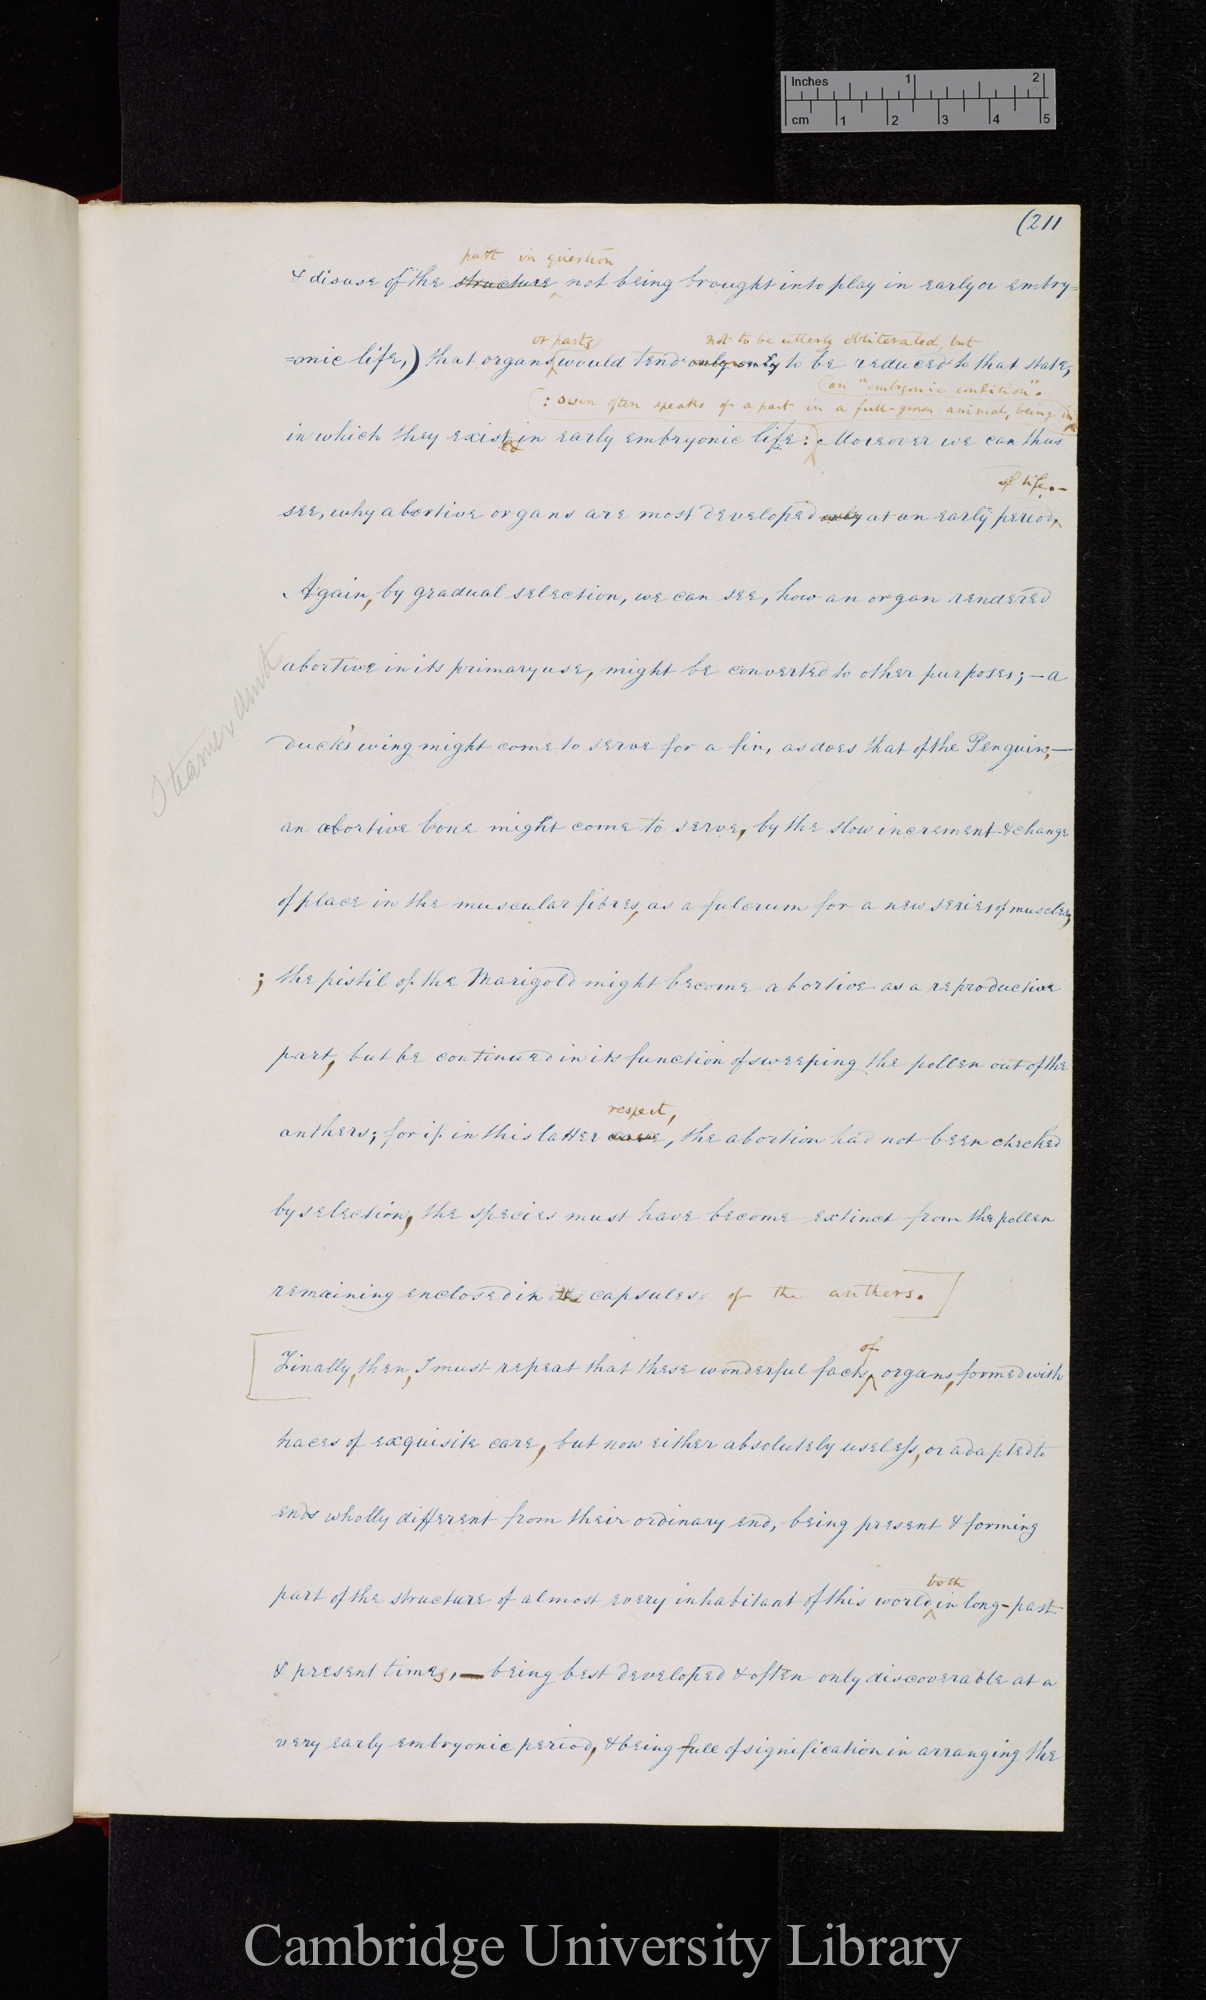 Inches 1 2
cm 1 2 3 4 5
(211
part in question
& disuse of the structure not being brought into play in early or embry=
or parts not to be utterly obliterated, but
=onic life,) that organs would tend only to be reduced to that state,
(an "embryonic condition".
(: Owen often speaks of a part in a full-grown animal, being in
in which they existed in early embryonic life: Moreover we can thus
of life.—
see, why abortive organs are most developed only at an early period,
Again, by gradual selection, we can see, how an organ rendered
abortive in its primary use, might be converted to other purposes; — a
Steamer duck
duck's wing might come to serve for a fin, as does that of the Penguin; —
an abortive bone might come to serve, by the slow increment & change
of place in the muscular fibres, as a fulcrum for a new series of muscles;
; the pistil of the Marigold might become abortive as a reproductive
part, but be continued in its function of sweeping the pollen out of the
respect,
anthers; for if in this latter case, the abortion had not been checked
by selection, the species must have become extinct from the pollen
remaining enclosed in the capsules of the anthers.]
of
[Finally, then, I must repeat that these wonderful facts organs, formed with
traces of exquisite care, but now either absolutely useless, or adapted to
ends wholly different from their ordinary end, being present & forming
both
part of the structure of almost every inhabitant of this world in long-past
& present times, — being best developed & often only discoverable at a
very early embryonic period, & being full of signification in arranging the
Cambridge University Library